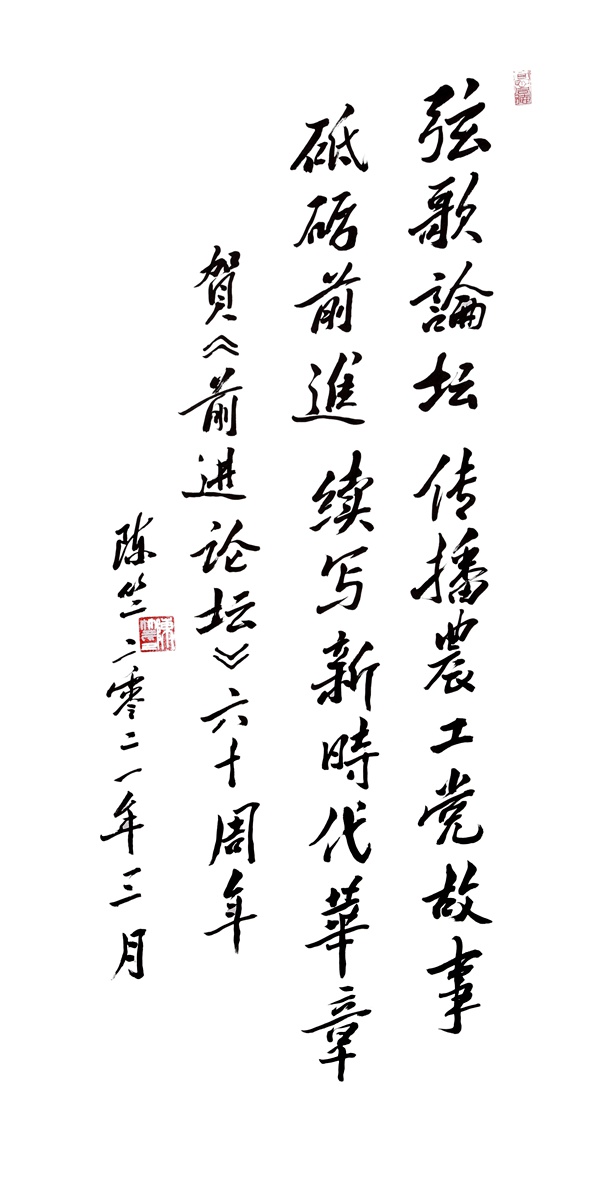 弦歌論坛 传播農工党故事
砥砺前進 续写新時代華章
贺《前进论坛》六十周年
陈竺 二零二一年三月